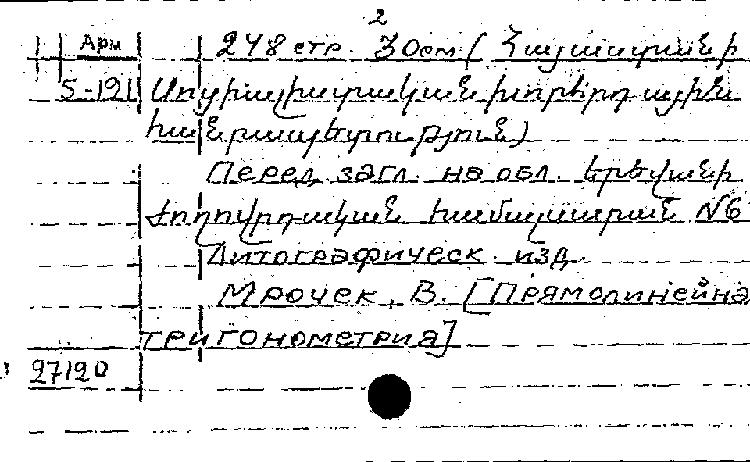 2
Арм 248 стр. 30см. (Հայաստանի
5-191 Սոցիալիստական խորհրդային
հանրապետություն)
Перед загл. на обл. Երեվանի
Ժողովրդական համալսարան №6
Литографическ. изд.
Мрочек, В. [Прямолинейна
тригонометрия]
27120